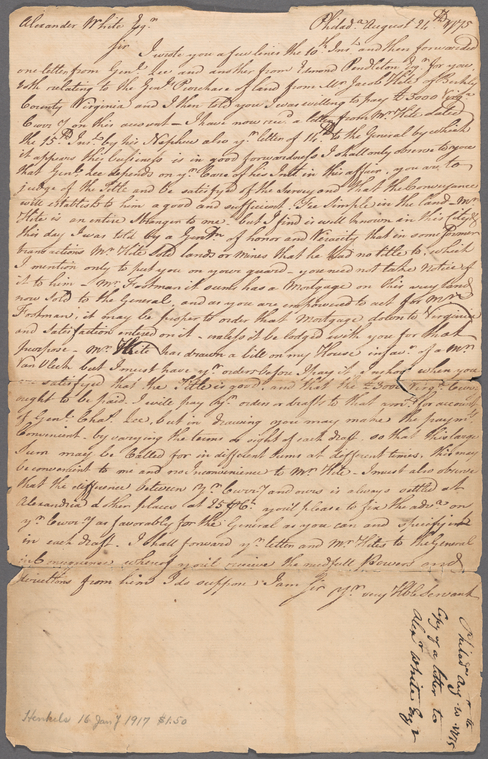 Alexander White Esqr. Philada. August 24th 1775
Sir
I wrote you a few lines the 10th Inst. and then forwarded
one letter from Genl. Lee and another from Edmond Pendleton Esqr. for you
both relating to the Genls. Purchase of land from Mr. Jacob Hite of Berkly
County Virginia and I then told you I was willing to pay £3000 Virga.
Curry. on this account — I have now recd. a letter from Mr. Hite dated
the 15th. Inst. by his Nephew also yr. letter of 14th to the General by which
it appears this business is in good forwardness I shall only observe to you
that Genl. Lee depends on yr. Care of his Intt. in this affair, you are to
judge of the Title and be satisfyd of the Survey and that the Conveyance
will establish to him a good and sufficient Fee Simple in the land — Mr.
Hite is an entire Stranger to me, but I find is well known in this City &
this day I was told by a Gentn. of honor and Veracity that in some former
transactions Mr. Hite sold lands or Mines that he had no title to, which
I mention only to put you on your guard — you need not take Notice of
it to him — Mr. Fortman it seems has a Mortgage on this very land
now Sold to the General, and as you are empowered to act for Mr.
Fortman, it may be proper to order that Mortgage down to Virginia
and Satisfaction entered on it — unless it be lodged with you for that
purpose — Mr. Hite has drawn a bill on my House in favr. of a Mr.
Van Vleck but I must have yr. orders before I pay it, & when you
are satisfyed that the Title is good, and that the £ Virga. Curry.
ought to be paid. I will pay yr. orders or drafts to that amot. for account
of Genl. Chas. Lee, but in drawing you may make the paymt.
Convenient. by varying the terms or sight of each draft. so that this large
Sum may be Called for in different Sums at different times. this may
be convenient to me and no Inconvenience to Mr. Hite — I must also observe
that the difference between yr. Curry. and ours is always settled at
Alexandria & other places at 25 pCt. you'll please to fix the advce. on
yr. Curry. as favorably for the General as you can and Specify it
in each draft — I shall forward yr. letter and Mr. Hites to the General
in Consequence whereof you'll receive the needfull Powers and
directions from him I do suppose, I am Sir Yr. very Hble Servant
Philada. Augt. 1775
Copy of a letter to
Alexr. White Esqr.
Henkels 16 Jan 7 1917 $1.50